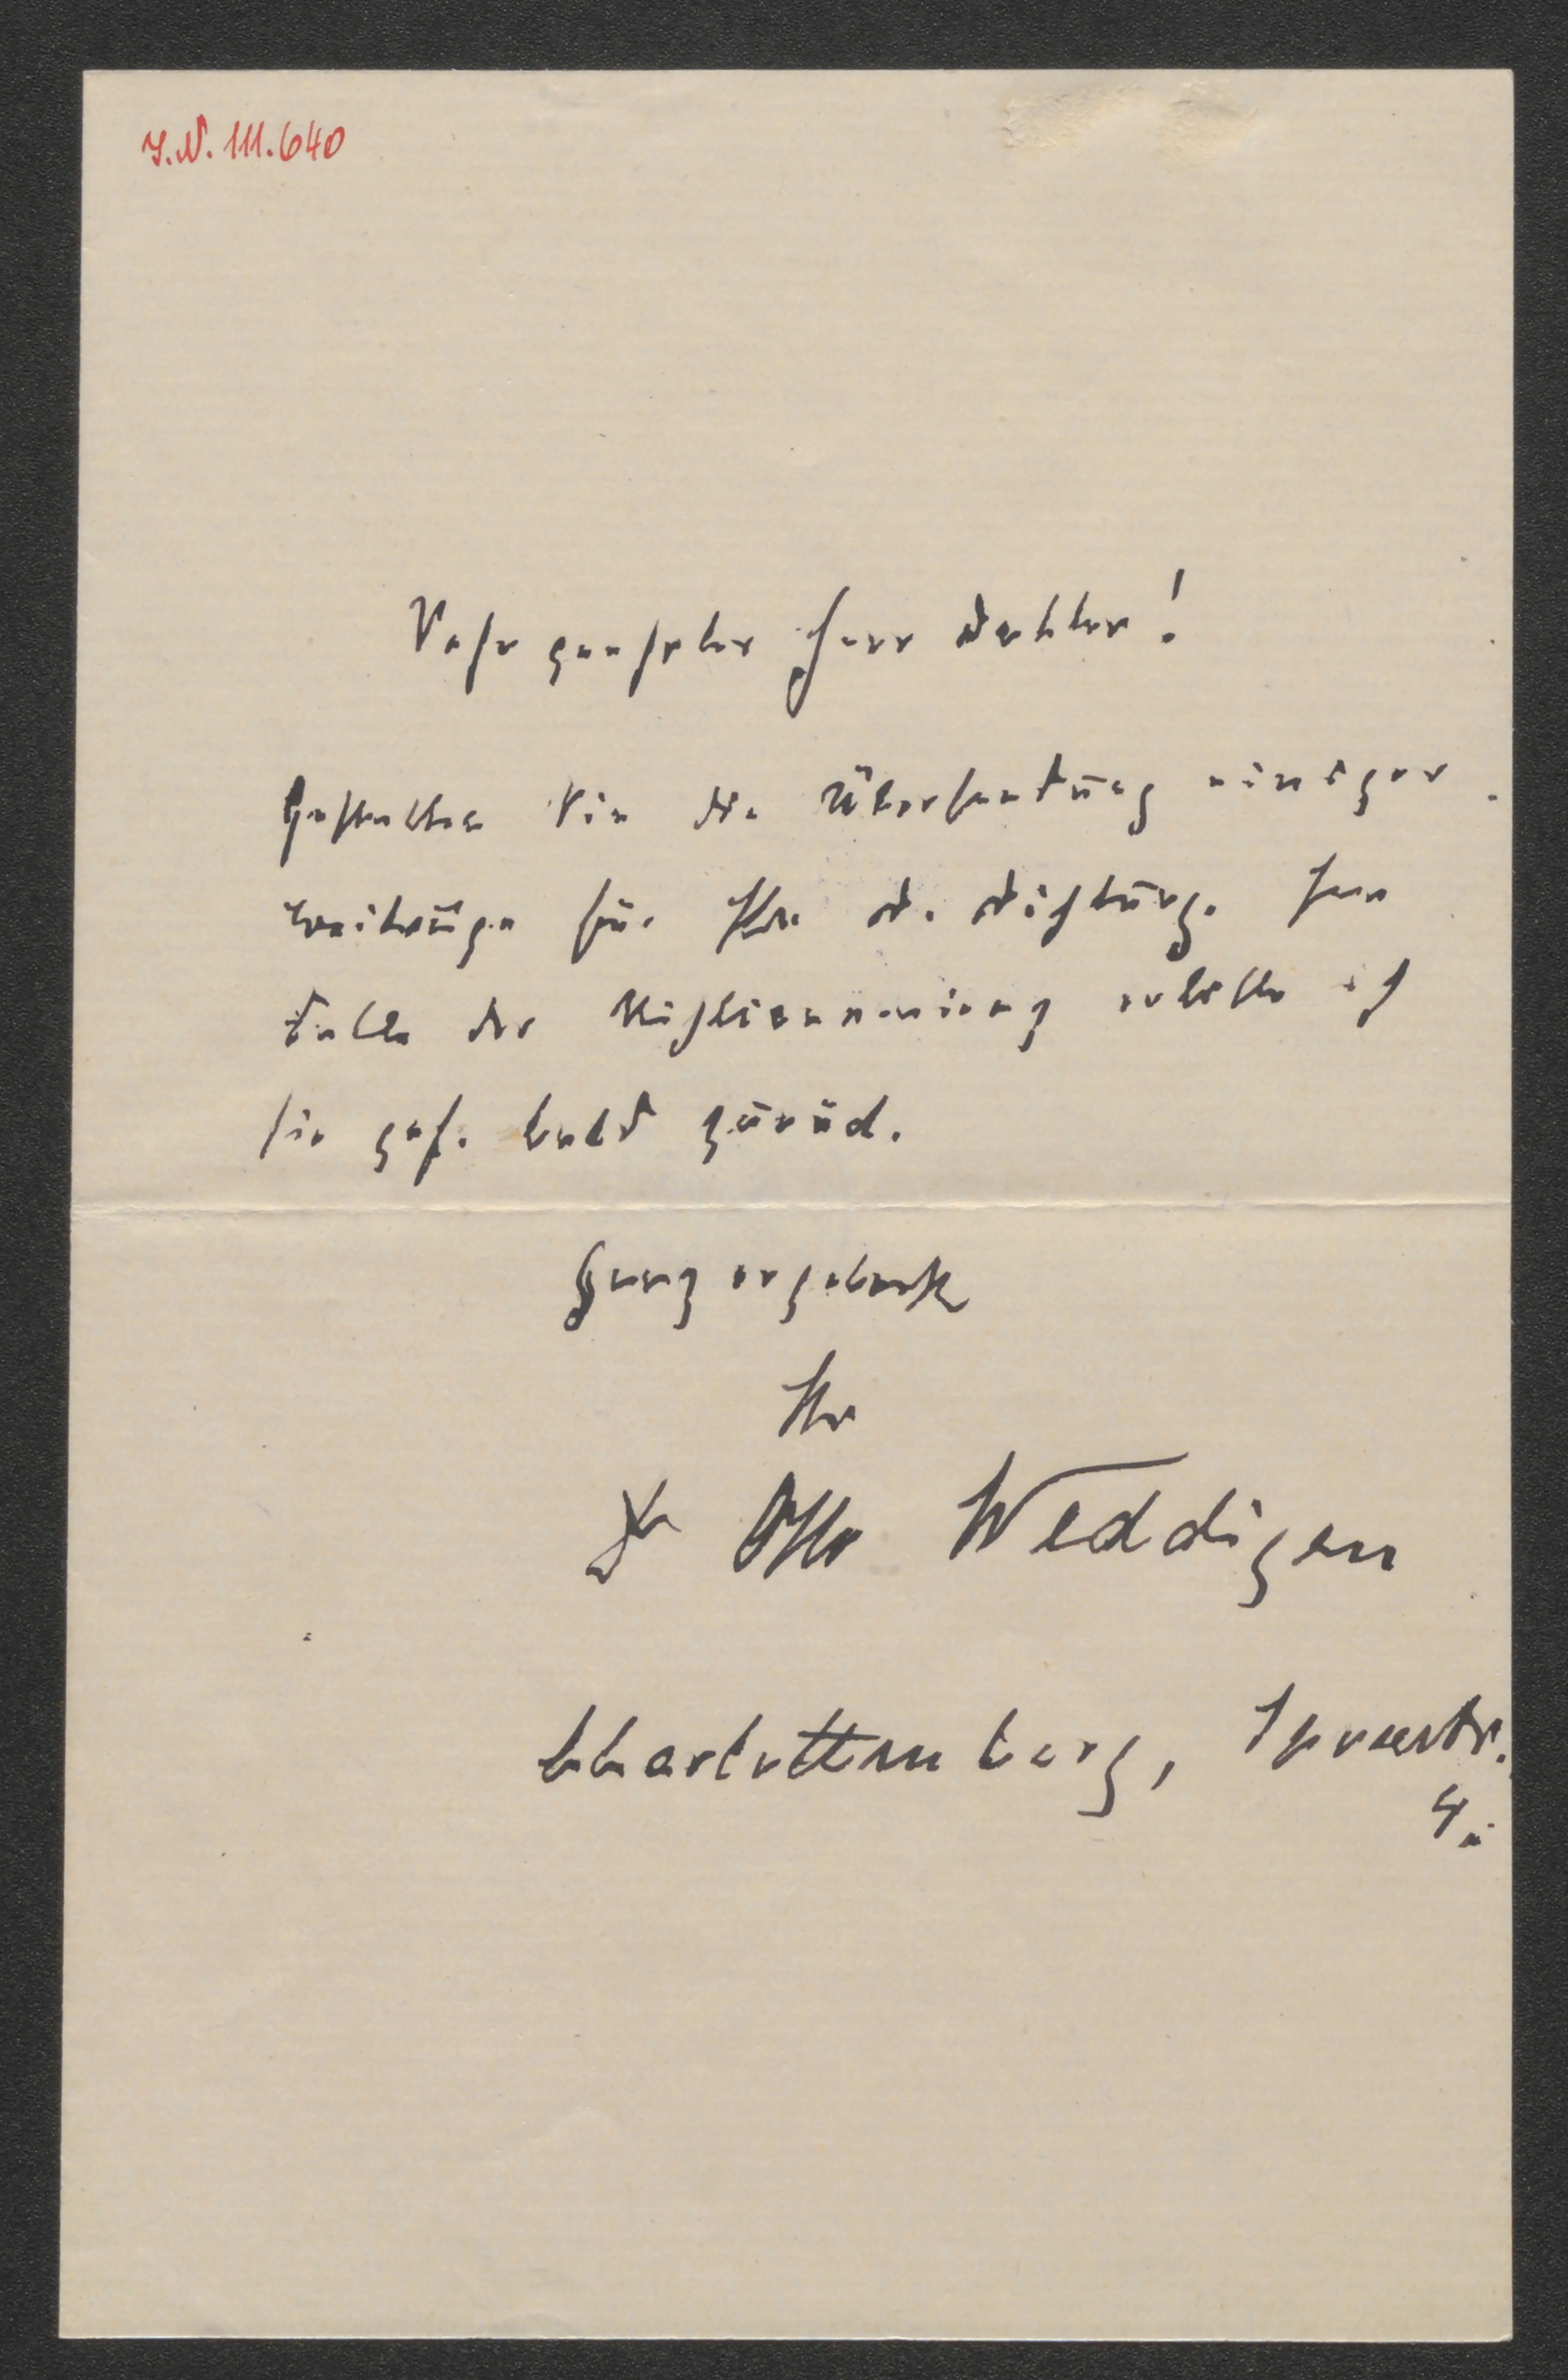 I.N. 111.640
Sehr geehrter Herr Doktor!
Gestatten Sie die Übersendung einiger
Beiträge für Ihre d. Dichtung. Im
Falle der Nichtannahme erbitte ich
sie gef. bald zurück.
Ganz ergebenst
Ihr
Dr Otto Weddigen
Charlottenburg, Spreestr.
4.